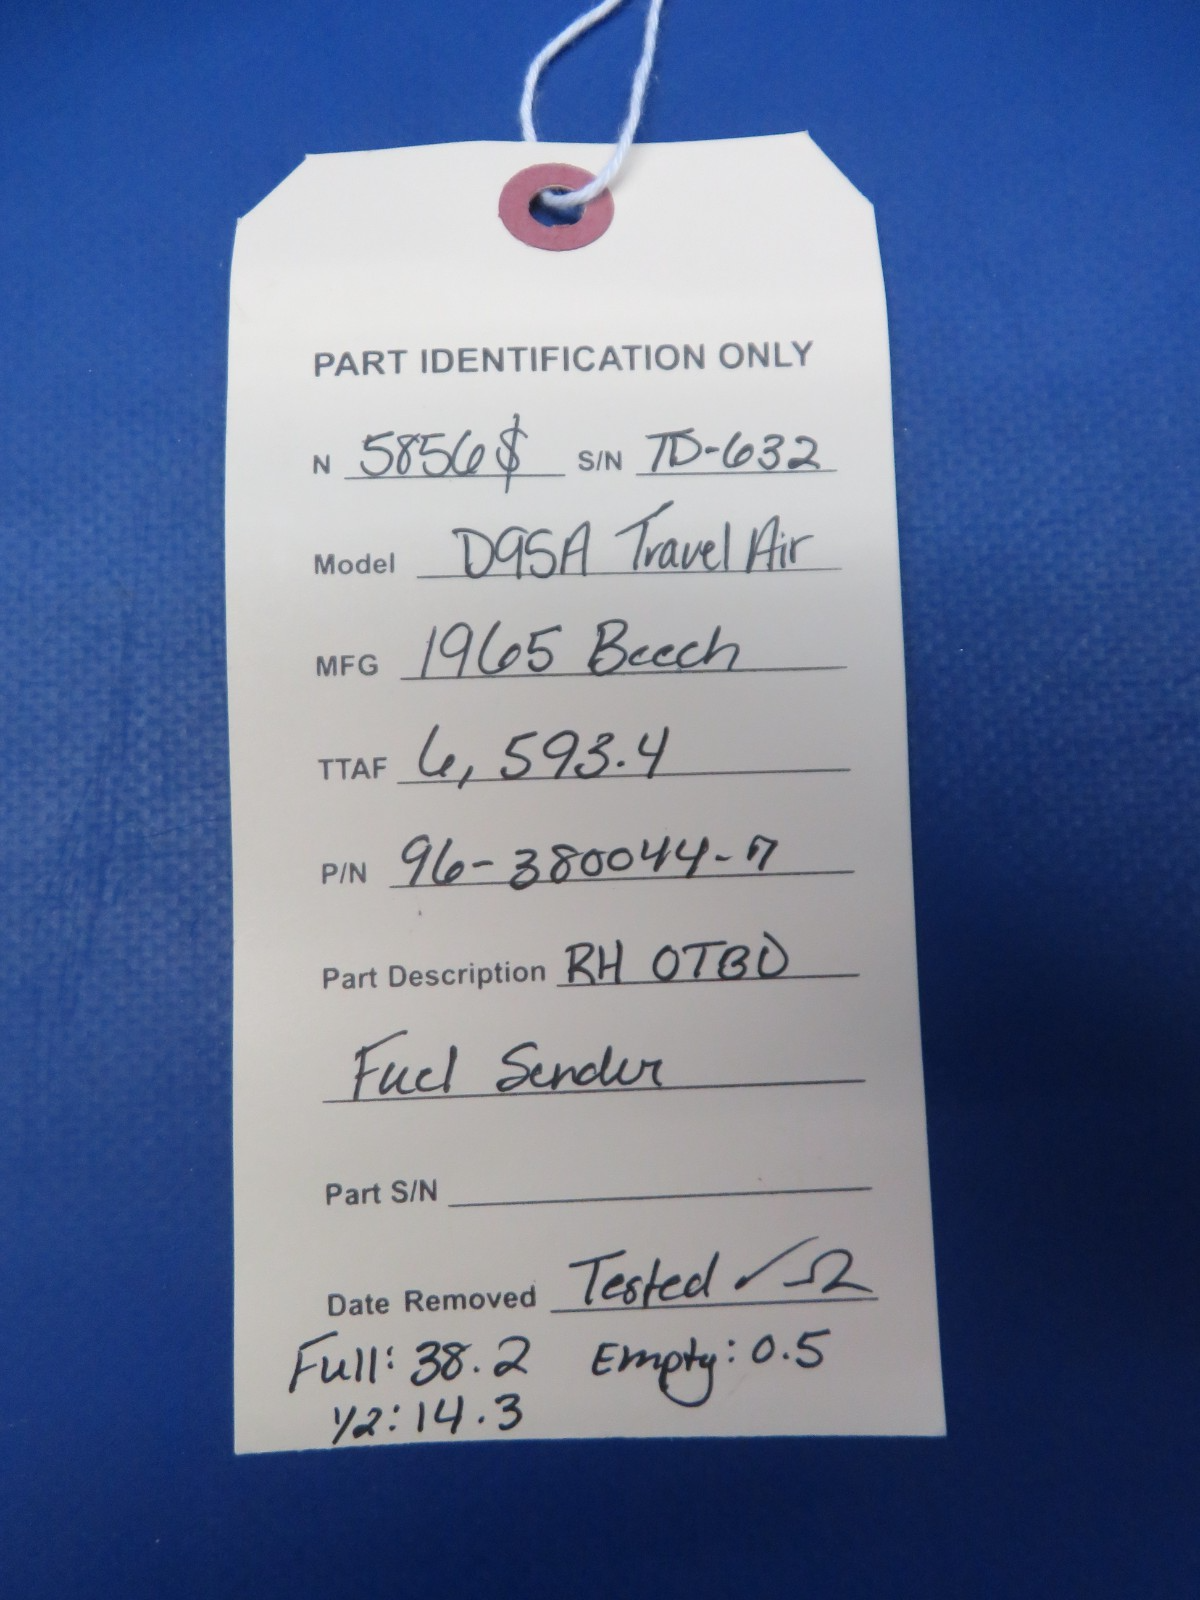 PART IDENTIFICATION ONLY
N 5856$ S/N TD-632
Model D95A Travel Air
MFG 1965 Beech
TTAF 6,593.4
P/N 96-380044-7
Part Description RH OTBD
Fuel Sender
Part S/N
Date Removed Tested ✓ Ω
Full: 38.2 Empty: 0.5
1/2: 14.3